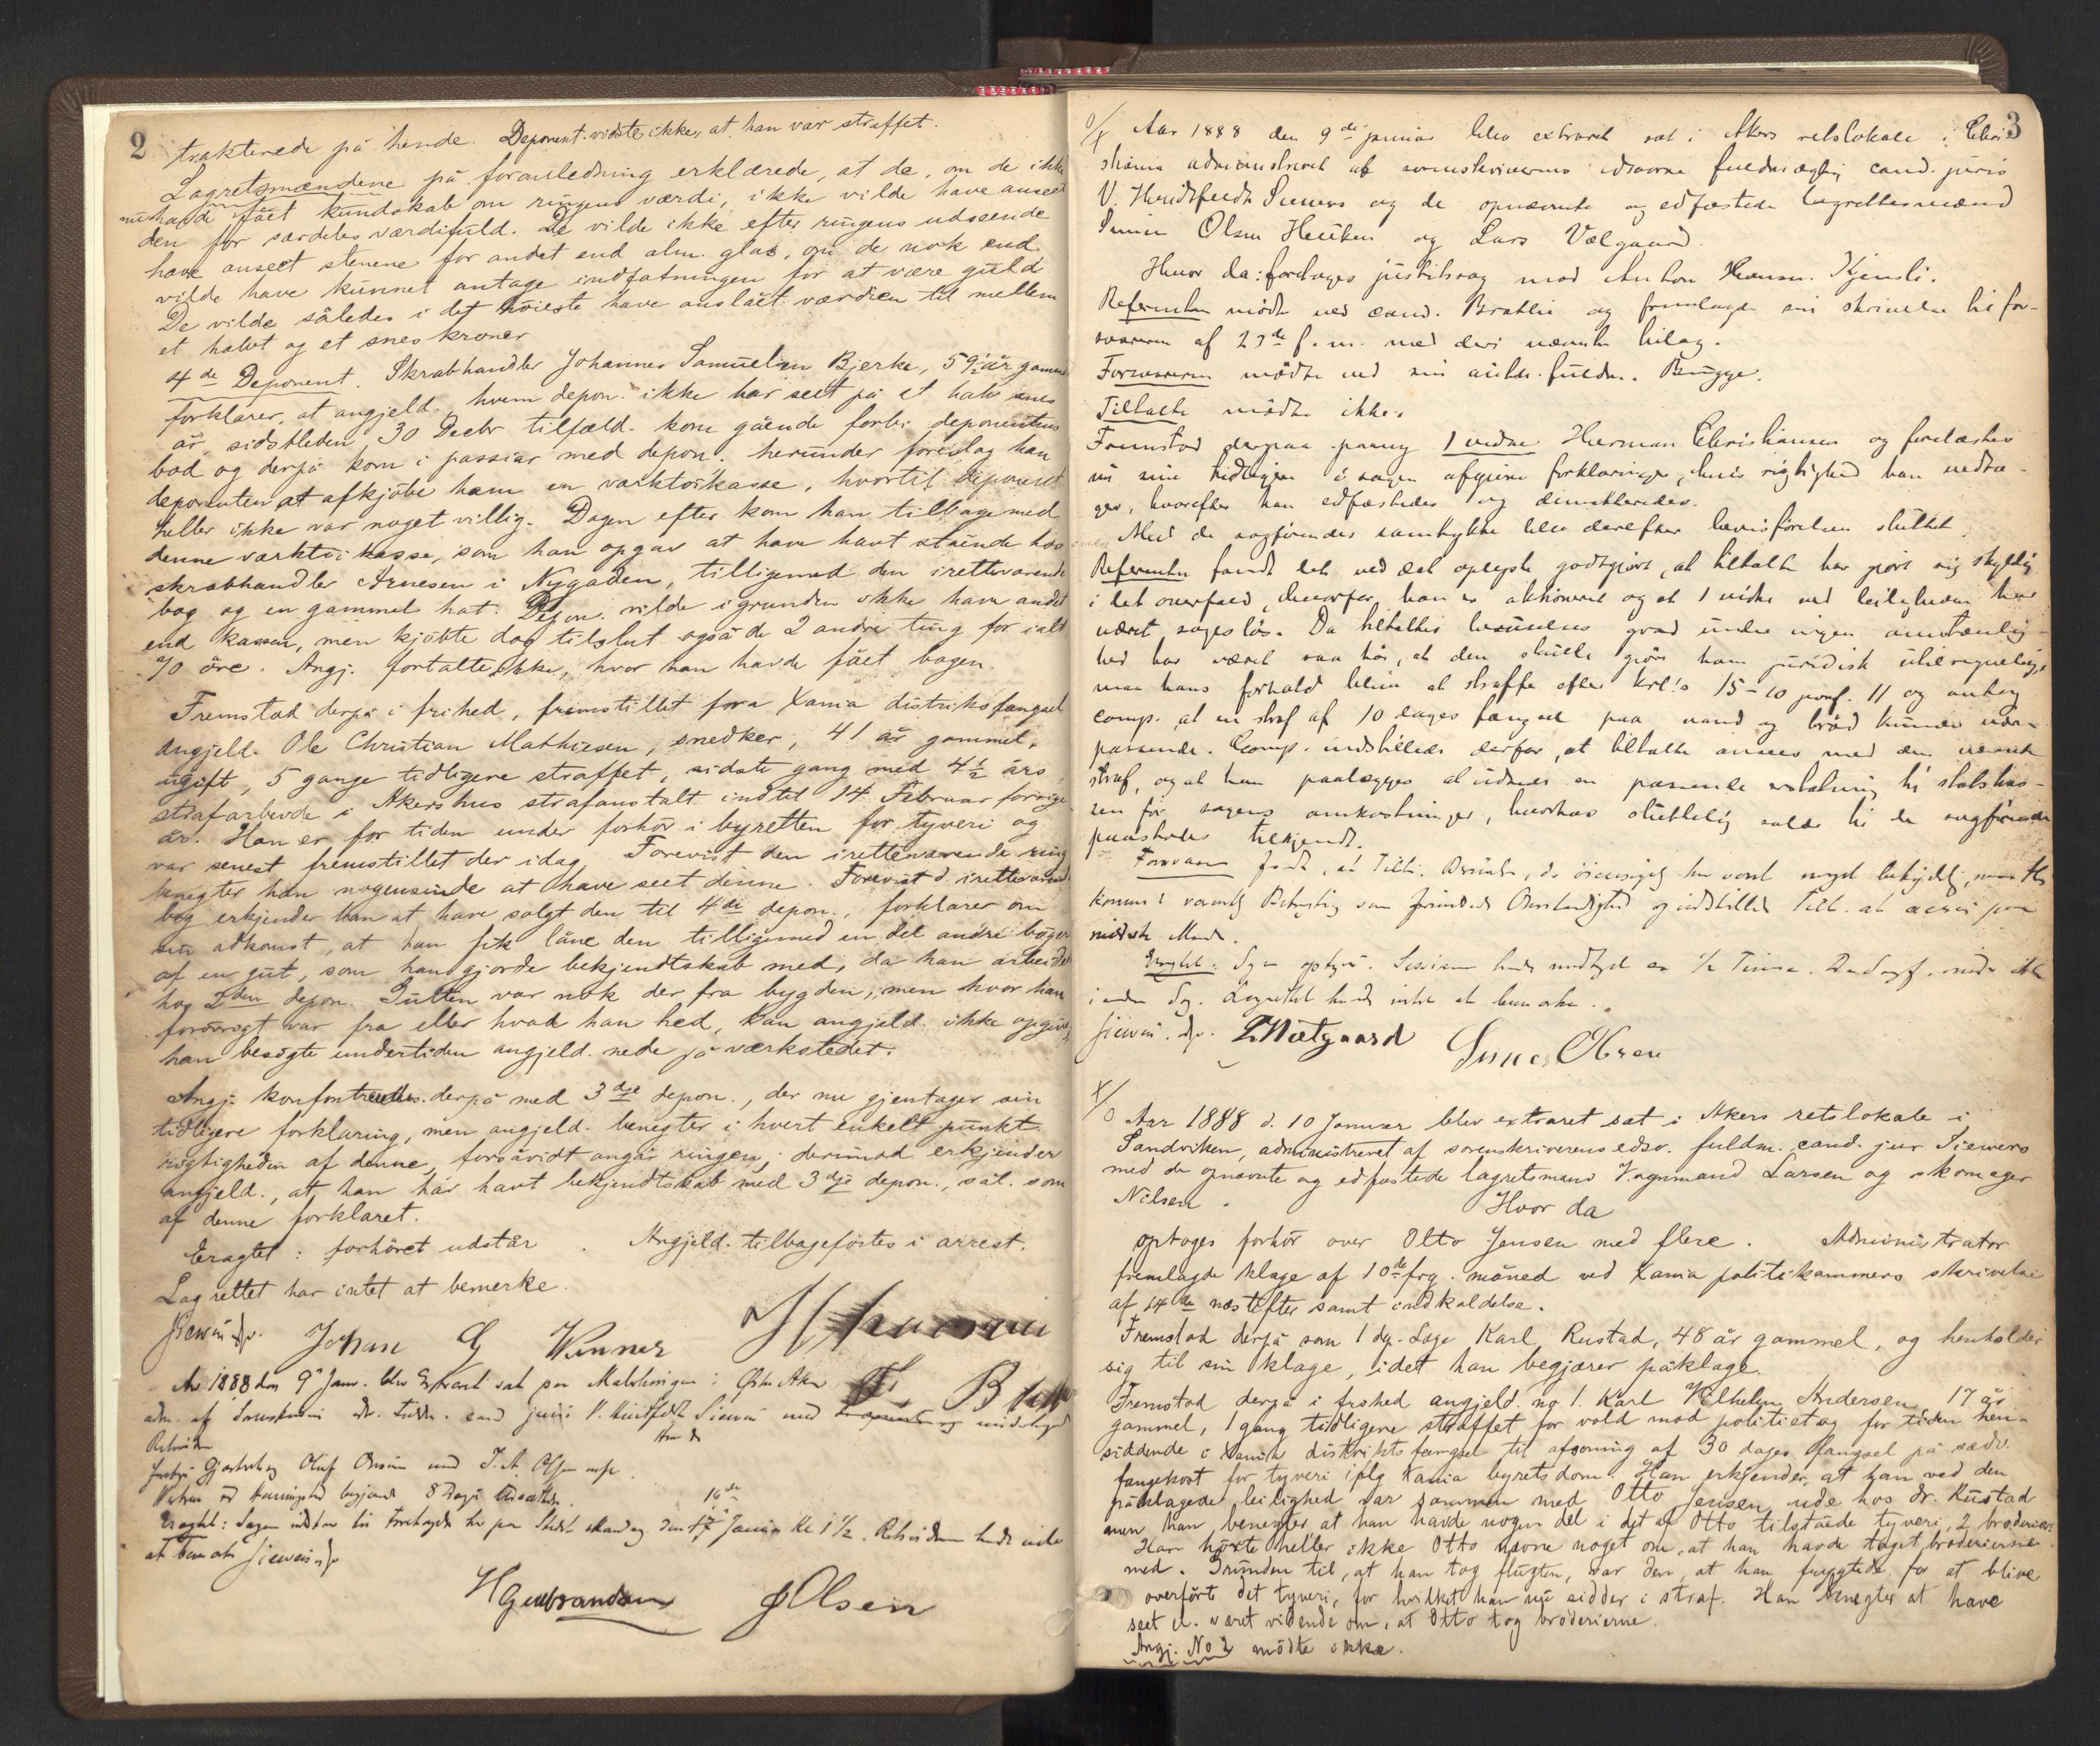 2
trakterede på hende. Deponent. vidste ikke, at han var straffet.
Lagretsmændene på foranledning erklærede, at de, om de ikke
nu havde fået kundskab om ringens værdi, ikke vilde have anseet
den for særdeles værdifuld. De vilde ikke efter ringens udseende
have anseet stenene for andet end alm. glas, om de nok end
vilde have kunnet antage indfatningen for at være guld
De vilde således i det höieste have anslået værdien til mellem
et halvt og et snes kroner
4de Deponent. Skrabhandler Johannes Samuelsen Bjerke, 59½ år gammel
forklarer, at angjeld. hvem depon. ikke har seet på et halv snes
år, sidstleden 30 Decbr tilfæld. kom gående forbi deponentens
bod og derpå kom i passiar med depon. herunder foreslog han
deponenten at afkjöbe ham en værktöikasse, hvortil deponent
heller ikke var noget villig. Dagen efter kom han tilbage med
denne værktöikasse, som han opgav at have havt stående hos
skrabhandler Arnesen i Nygaden, tilligemed den iretteværende
bog og en gammel hat. Depon. vilde igrunden ikke have andet
end kassen, men kjöbte dog tilslut også de 2 andre ting for ialt
70 öre. Angj. fortalte ikke, hvor han havde fået bogen.
Fremstod derpå i frihed, fremstillet fra Xania distriktsfængsel
Angjeld. Ole Christian Mathiesen, snedker, 41 år gammel,
ugift, 5 gange tidligere straffet, sidste gang med 4½ års
strafarbeide i Akershus strafanstalt indtil 14 Februar forrige
år. Han er for tiden under forhör i byretten for tyveri og
var senest fremstillet der idag. Forevist den iretteværende ring
benegter han nogensinde at have seet denne. Forevist d. iretteværend
bog erkjender han at have solgt den til 4de depon., forklarer om
sin adkomst, at han fik låne den tilligemed en del andre böger
af en gut, som han gjorde bekjendtskab med, da han arbeidet
hos 2den depon. Gutten var nok der fra bygden, men hvor han
forövrigt var fra eller hvad han hed, kan angjeld. ikke opgive,
han besögte undertiden angjeld. nede på værkstedet.
Angj. konfronteredes derpå med 3die depon., der nu gjentager sin
tidligere forklaring, men angjeld. benegter i hvert enkelt punkt
rigtigheden af denne, forsåvidt angår ringen; derimod erkjender
angjeld., at han har havt bekjendtskab med 3die depon., sål. som
af denne forklaret.
Eragtet: forhöret udstår. Angjeld. tilbageförtes i arrest.
Lagrettet har intet at bemerke.
Johan G Wenner
Ar 1888 den 9 Janr. blev Extraret sat paa i Östre Aker
adm. af cand juris V. Huitfeldt Siewers med
Hvor da
Gjæstgiver Oluf und J. A. Olsen
begjærede 8 Dage
Eragtet: Sagen til Foretagelse her paa Stedet den 16de Januar Kl 1½. Retsvidnerne havde intet
at bemærke Siewers
H Gulbrandsen J Olsen
3
Aar 1888 den 9de januar blev extraret sat i Akers retslokale i Chri-
stiania administreret af sorenskriverens edsvorne fuldmægtig cand. juris
V. Huidtfeldt Siewers og de opnævnte og edfæstede lagrettesmænd
Simen Olsen og Lars Vælgaard.
Hvor da: foretoges justitssag mod Anton Hansen Kjensli.
Referenten mödte ved cand. Bratlie og fremlagde sin skrivelse til for-
svareren af 23de f. m. med deri nævnte bilag.
Forsvareren mödte ved sin fuldm. Brügge.
Tiltalte mödte ikke.
Fremstod derpaa paany 1 vidne Herman Christiansen og forelæstes
nu sine tidligere i sagen afgivne forklaringer, hvis rigtighed han vedto-
ges, hvorefter han edfæstedes og dimitteredes.
Med de sagförendes samtykke blev derefter bevisförelsen sluttet.
Referenten fandt det ved det oplyste godtgjort, at tiltalte har gjort sig skyldig
i det overfald, hvorfor han er aktioneret og at 1 vidne ved leiligheden har
været sageslös. Da tiltaltes beruselses grad under ingen omstændig-
hed har været saa höi, at den skulde gjöre ham juridisk utilregnelig,
maa hans forhold blive at straffe efter krl!s 15-10 jvnf. 11 og antog
comp. at en straf af 10 dages fængsel paa vand og bröd kunde være
passende. Comp. indstillede derfor, at tiltalte ansees med den nævnte
straf, og at han paalægges at udrede en passende erstatning til statskas-
sen for sagens omkostninger, hvorhos skjellig salær til de sagförende
paastodes tilkjendt.
Forsvareren fandt, at Tilt. Beruselse, da har været meget betydelig, maatte
komme i Betragtning som formildende Omstændighed og indstillede Tilt. at ansees paa
mildeste Maade.
Eragtet: Sagen optages. Sessionen havde medtaget ca ½ Time.
i anden Sag. Lagrettet havde intet at bemærke.
L Wælgaard Simen Olsen
Aar 1888 d. 10 Januar blev extraret sat i Akers retslokale i
Sandviken, administreret af sorenskriverens edsv. fuldm. cand. jur Siewers
med de opnævnte og edfæstede lagretsmænd Vognmand Larsen og skomager
Nilsen. Hvor da
optoges forhör over Otto Jensen med flere. Administrator
fremlagde klage af 10de frg. måned ved Xania politikammers skrivelse
af 14de næstefter samt indkaldelse.
Fremstod derpå som 1 dep. Læge Karl Rustad, 48 år gammel, og henholder
sig til sin klage, idet han begjærer påklage.
Fremstod derpå i frihed angjeld. no 1. Karl Vilhelm Andersen 17 år
gammel, 1 gang tidligere straffet for vold mod politiet og for tiden hen-
siddende i Xania distrikts fængsel til afsoning af 30 dages fængsel på sædv.
fangekost for tyveri iflg Xania byrets dom. Han erkjender, at han ved den
påklagede leilighed var sammen med Otto Jensen ude hos dr. Rustad
men han benegter at han havde nogen del i det af Otto tilståede tyveri, 2 broderier
Han hörte heller ikke Otto nævne noget om, at han havde taget broderierne
med. Grunden til, at han tog flugten, var den, at han frygtede for at blive
overfört det tyveri, for hvilket han nu sidder i straf. Han benegter at have
seet el. været vidende om, at Otto tog broderierne.
Angj. No 2 mödte ikke.